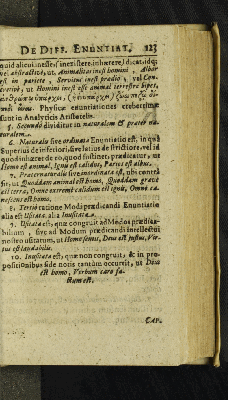 DE DIFF. ENUNTIAT. 123
quid alicui inesse, (inexistere, inhærere) dicat: idq;
vel abstractivè, ut, Animalitas inest homini, Albor
est in pariete, Servitus inest prædio; vel Con-
cretivè, ut Homini inest esse animal terrestre bipes,
Physicæ enuntiationes creberrimæ
sunt in Analyticis Aristotelis.
5. Secundò dividitur in naturalem & præter na-
turalem.
6. Naturalis sive ordinata Enuntiatio est, in quâ
Superius de inferiori, sive latius de strictiore, vel id
quod inhæret de eo, quod sustinet, prædicatur, ut
Homo est animal, Ignis est calidus, Paries est albus.
7. Præternaturalis sive inordinata est, ubi contrà
fit, ut Quoddam animal est homo, Quoddam grave
est terra, Omne extremè calidum est ignis, Omne ca-
nescens est homo.
8. Tertiò ratione Modi prædicandi Enuntiatio
alia est Usitata, alia Inusitata.
9. Usitata est, quæ congruit ad Modos prædica-
bilium, sive ad Modum prædicandi intellectui
nostro usitatum, ut Homo sentit, Deus est justus, Vir-
tus est laudabilis.
10. Inusitata est, quæ non congruit, & in pro-
positionibus fide notis tantùm occurrit, ut Deus
est homo, Verbum caro fa-
ctum est.
CAP.